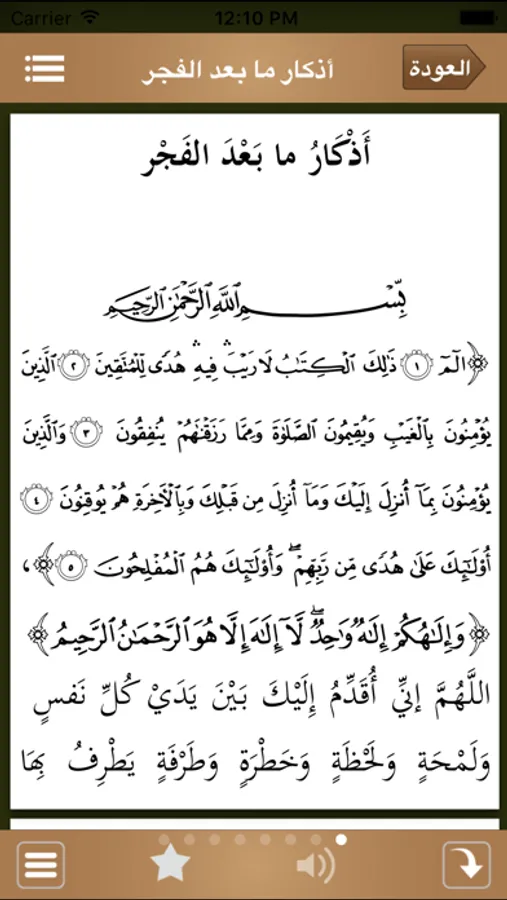 Carrier 12:10 PM
العودة
أذكار ما بعد الفجر
أَذْكَارُ ما بَعْدَ الفَجْر
بِسْمِ اللَّهِ الرَّحْمَٰنِ الرَّحِيمِ
﴿الٓمٓ ١ ذَٰلِكَ ٱلْكِتَٰبُ لَا رَيْبَ ۛ فِيهِ ۛ هُدًى لِّلْمُتَّقِينَ ٢ ٱلَّذِينَ
يُؤْمِنُونَ بِٱلْغَيْبِ وَيُقِيمُونَ ٱلصَّلَوٰةَ وَمِمَّا رَزَقْنَٰهُمْ يُنفِقُونَ ٣ وَٱلَّذِينَ
يُؤْمِنُونَ بِمَآ أُنزِلَ إِلَيْكَ وَمَآ أُنزِلَ مِن قَبْلِكَ وَبِٱلْأَخِرَةِ هُمْ يُوقِنُونَ ٤
أُو۟لَٰٓئِكَ عَلَىٰ هُدًى مِّن رَّبِّهِمْ ۖ وَأُو۟لَٰٓئِكَ هُمُ ٱلْمُفْلِحُونَ ٥﴾،
﴿وَإِلَٰهُكُمْ إِلَٰهٌ وَٰحِدٌ ۖ لَّآ إِلَٰهَ إِلَّا هُوَ ٱلرَّحْمَٰنُ ٱلرَّحِيمُ﴾
اللَّهُمَّ إنِّي أُقَدِّمُ إِلَيْكَ بَيْنَ يَدَيْ كُلِّ نَفَسٍ
وَلَمْحَةٍ وَلَحْظَةٍ وَخَطْرَةٍ وَطَرْفَةٍ يَطْرِفُ بِهَا